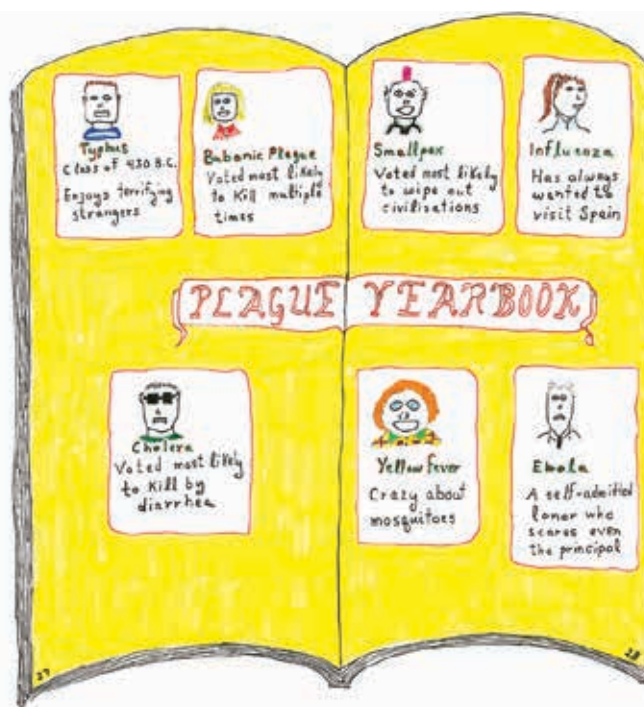 Typhus
Class of 430 B.C.
Enjoys terrifying
strangers
Bubanic Plague
Voted most likely
to Kill multiple
times
Smallpox
Voted most likely
to wipe out
civilizations
Influenza
Has always
wanted to
visit Spain
PLAGUE YEARBOOK
Cholera
Voted most likely
to Kill by
diarrhea
Yellow Fever
Crazy about
mosquitoes
Ebola
A self-admitted
loner who
scares even
the principal
27
28